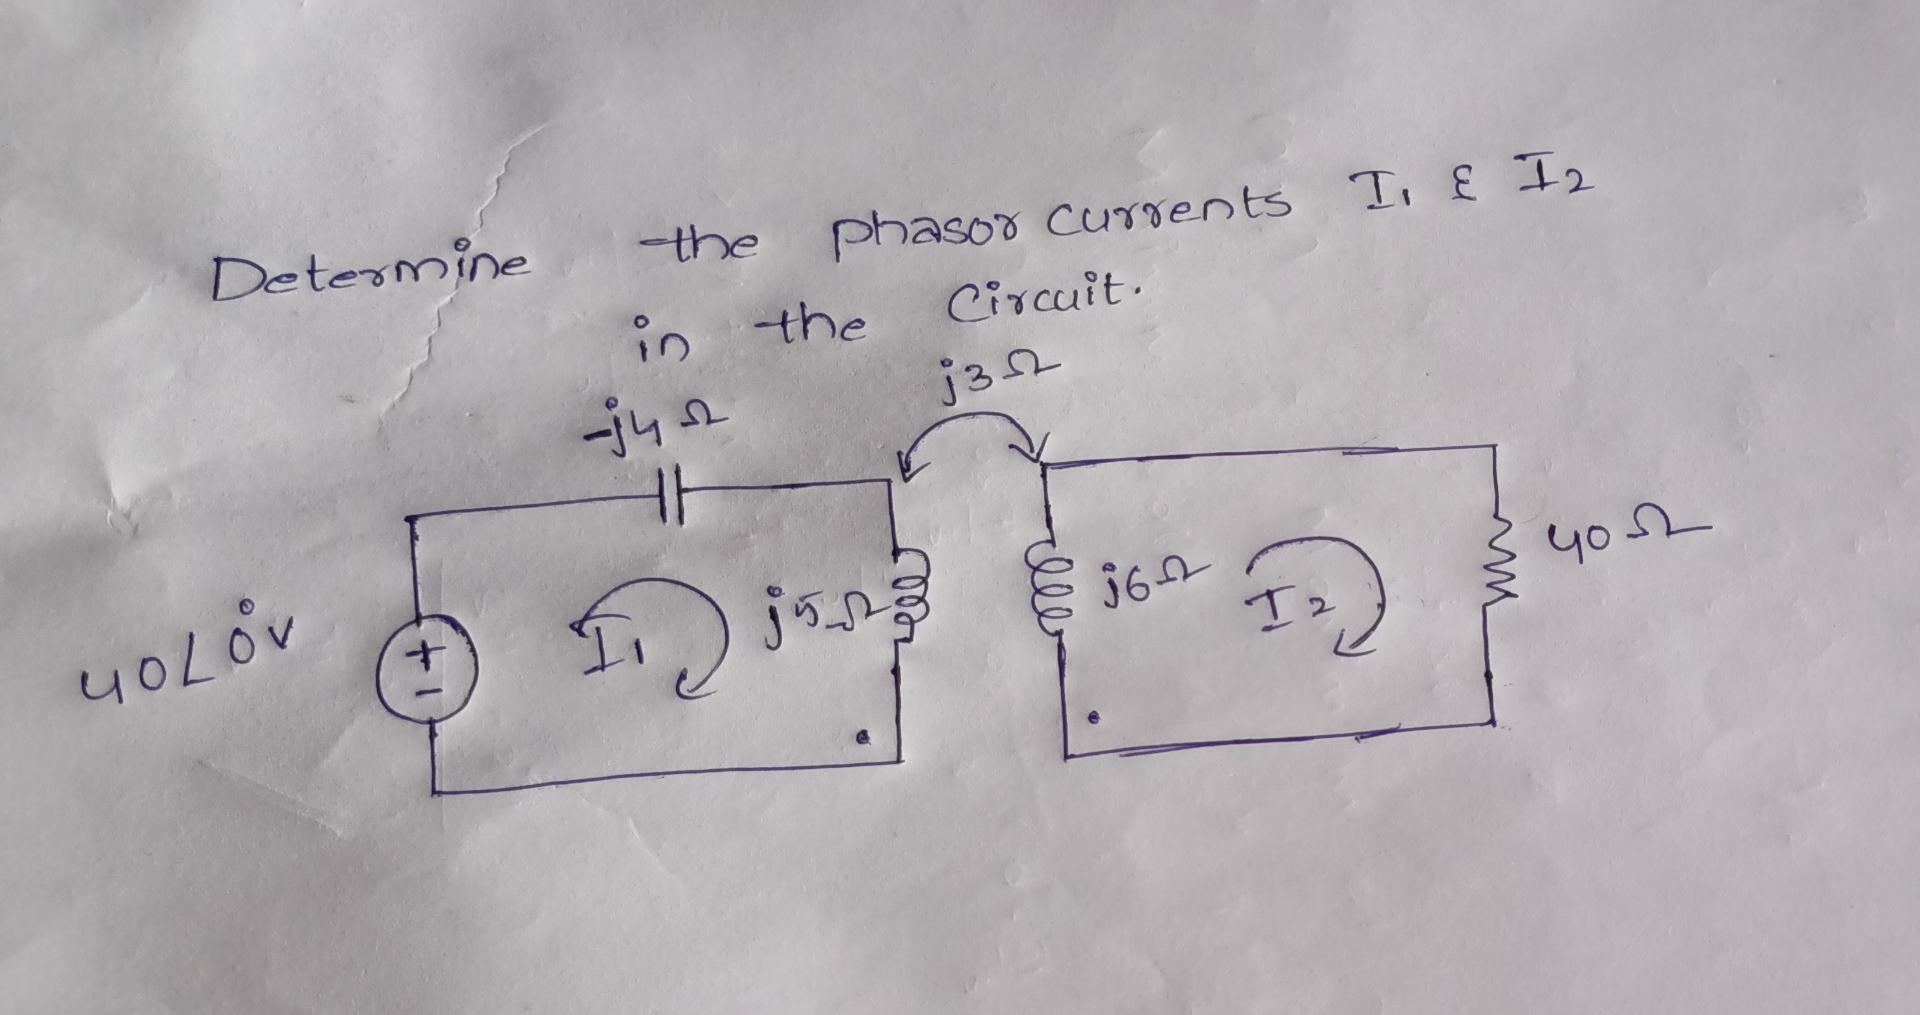 Determine the phasor currents I₁ & I₂
in the Circuit.
j3Ω
-j4Ω
40∠0°V
+
-
I₁
j5Ω
j6Ω
I₂
40Ω